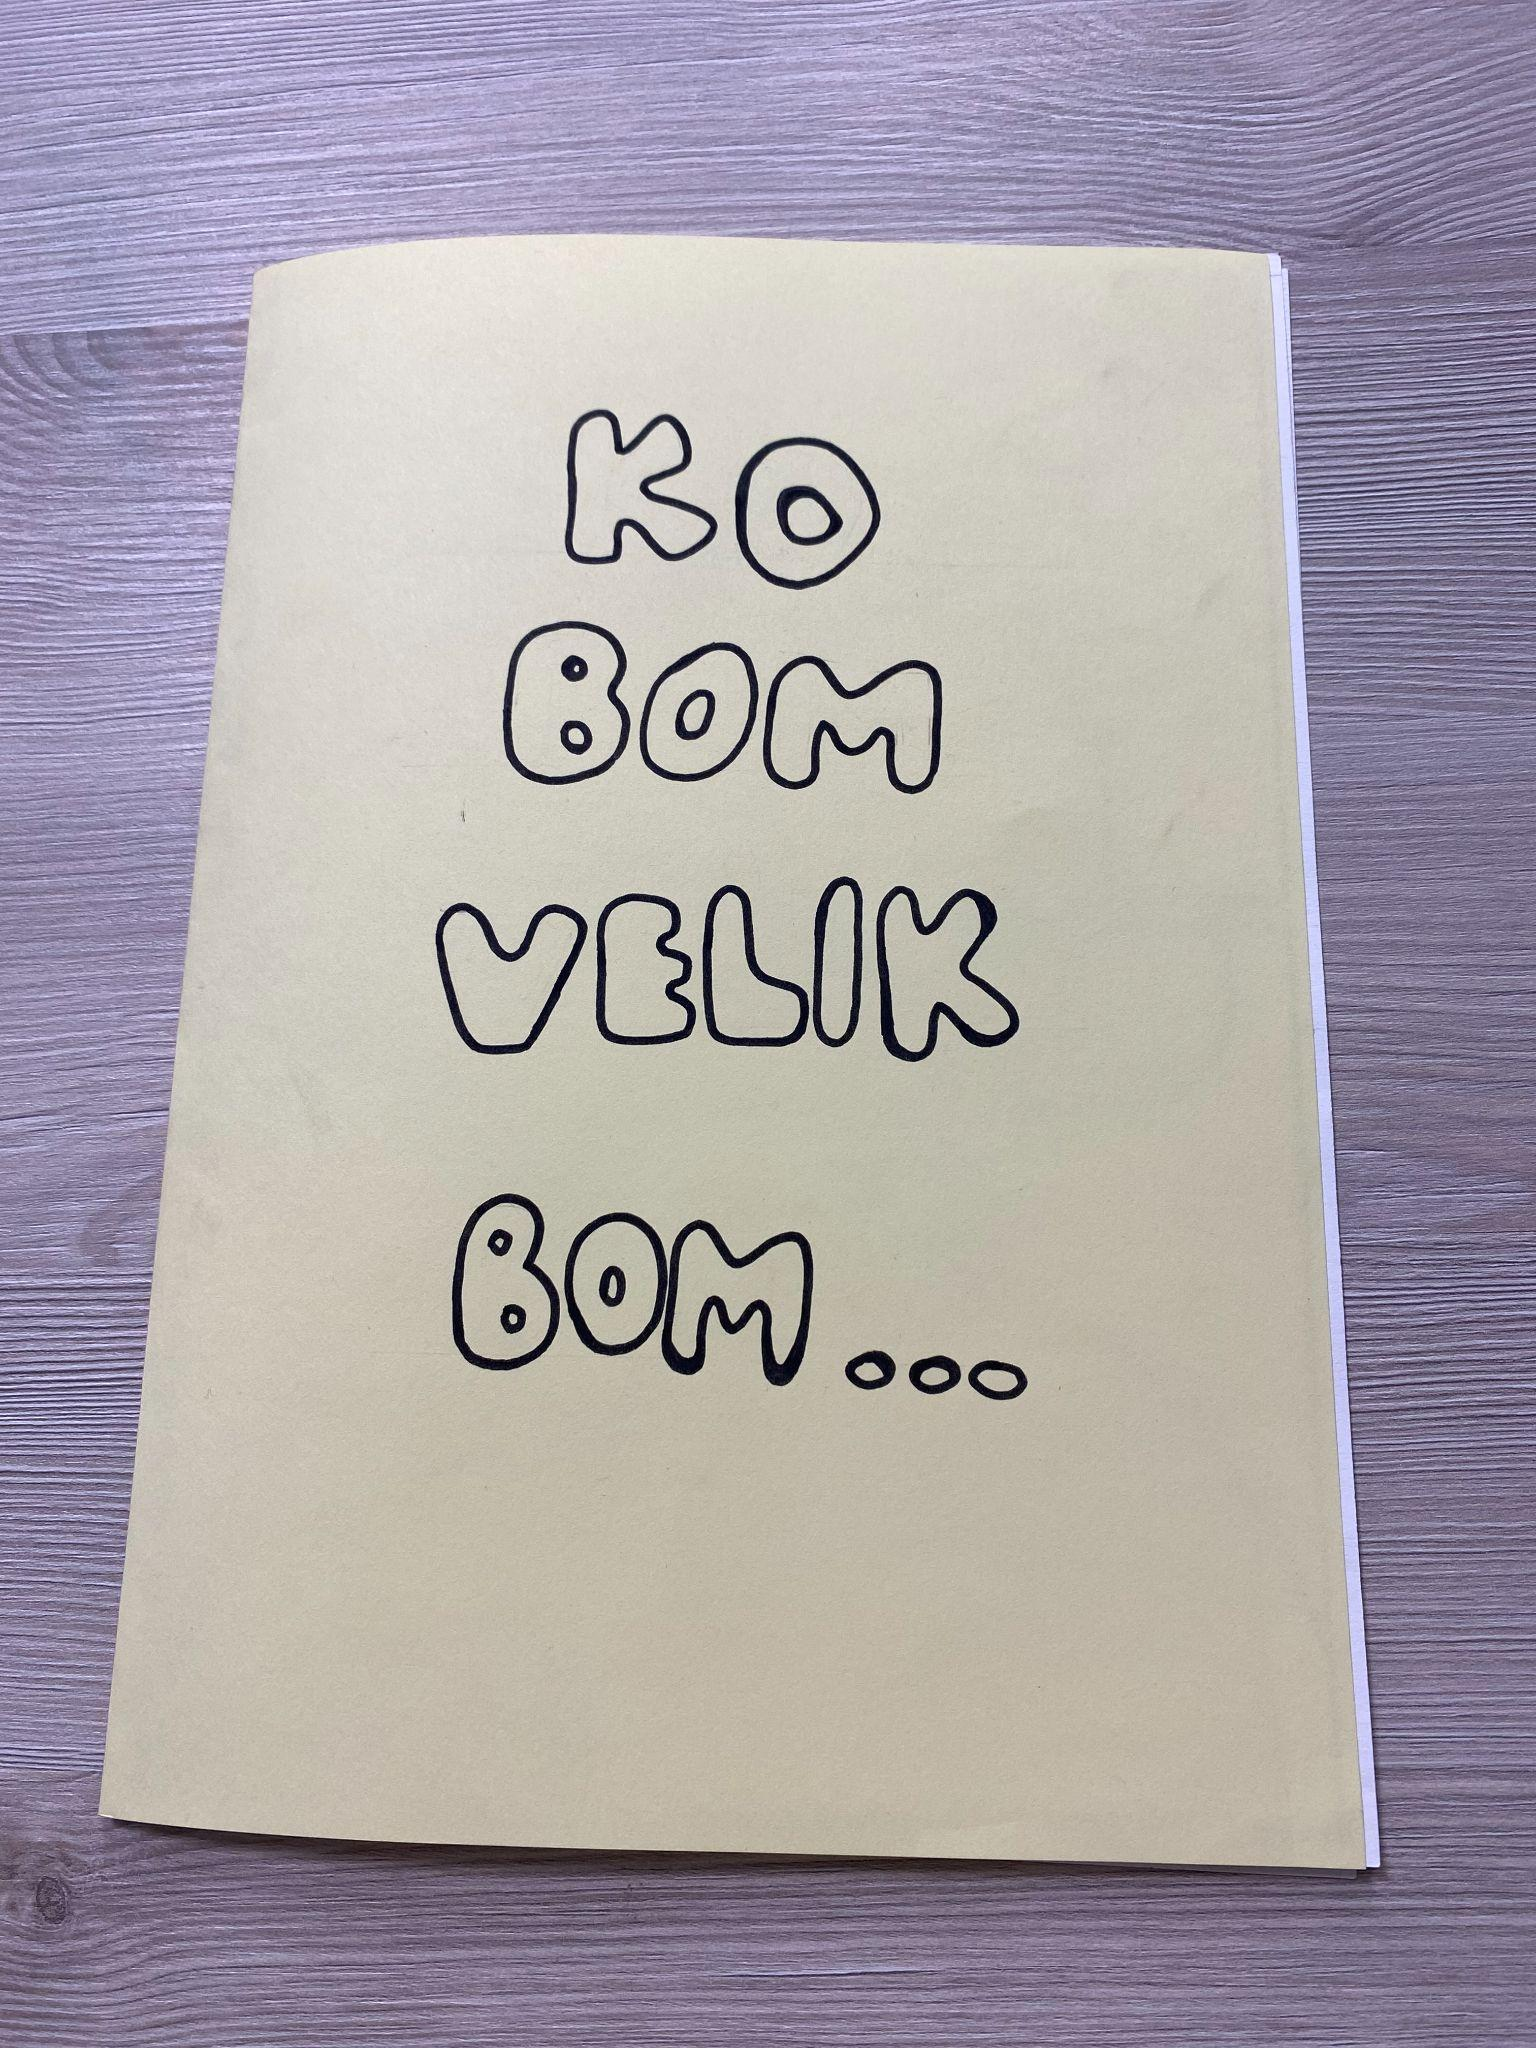 KO
BOM
VELIK
BOM...